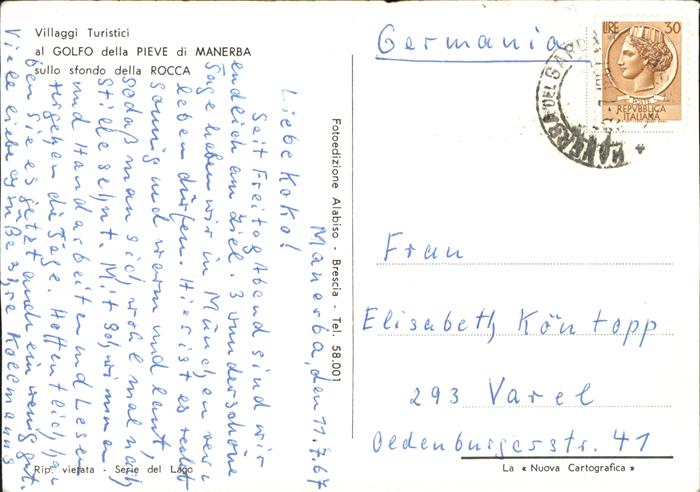 Villaggi Turistici
al GOLFO della PIEVE di MANERBA
sullo sfondo della ROCCA
Manerba, den 11.7.67
Liebe Koko!
Seit Freitag Abend sind wir
endlich am Ziel. 3 wunderschöne
Tage haben wir in München ver-
leben dürfen. Hier ist es recht
sonnig und warm und laut,
sodaß man sich wohl mal nach
Stille sehnt. Mit Schwimmen
und Handarbeiten und Lesen
vergehen die Tage. Hoffentlich ha-
ben Sie es jetzt auch ein wenig gut.
Viele liebe Grüße Ihre Kollmanns
Rip. vietata - Serie del Lago
Fotoedizione Alabiso - Brescia - Tel. 58.001
Germania
LIRE 30
POSTE
REPVBBLICA
ITALIANA
MANERBA DEL GARDA
Frau
Elisabeth Köntopp
293 Varel
Oldenburgerstr. 41
La « Nuova Cartografica »